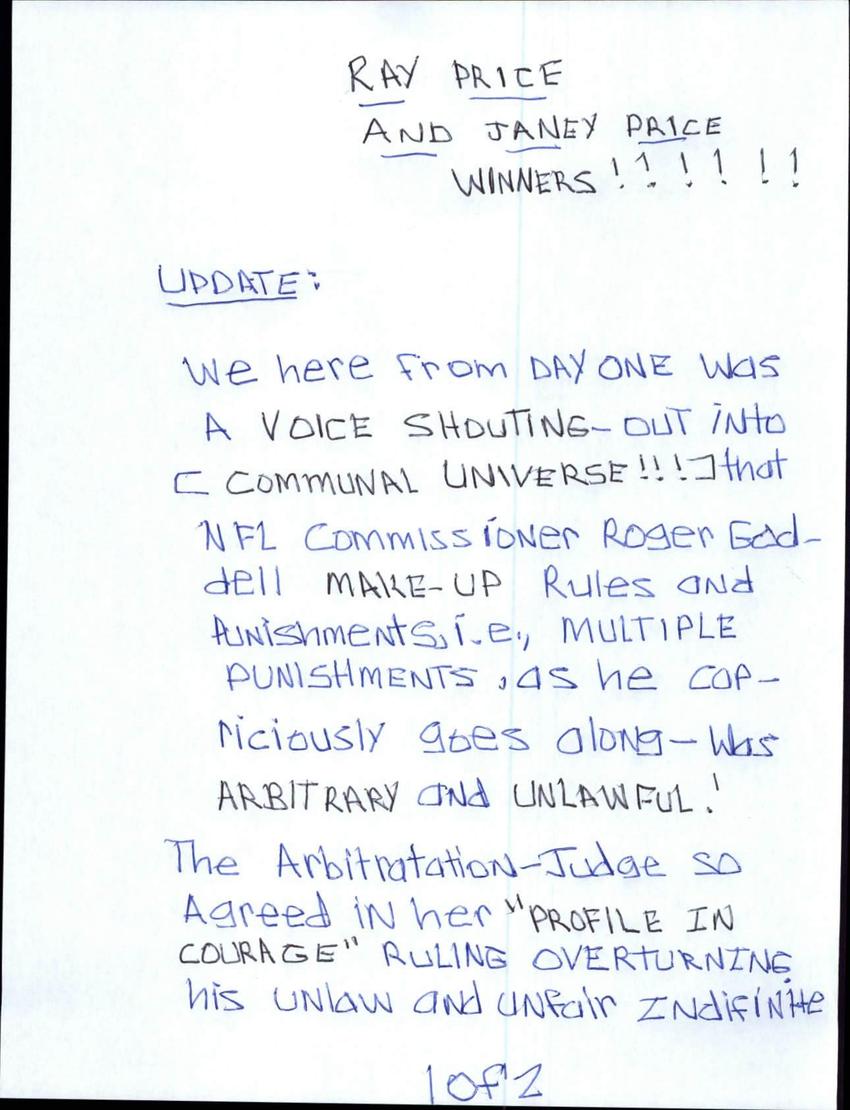 RAY PRICE
AND JANEY PRICE
WINNERS !?!!!!
UPDATE:
We here from DAY ONE was
A VOICE SHOUTING-OUT into
[ COMMUNAL UNIVERSE!!!] that
NFL Commissioner Roger God-
dell MAKE-UP Rules and
Punishments, i.e., MULTIPLE
PUNISHMENTS, as he cap-
riciously goes along-was
ARBITRARY and UNLAWFUL!
The Arbitratation-Judge so
Agreed in her "PROFILE IN
COURAGE" RULING OVERTURNING
his UNLAW and UNfair INdifiNite
1 of 2